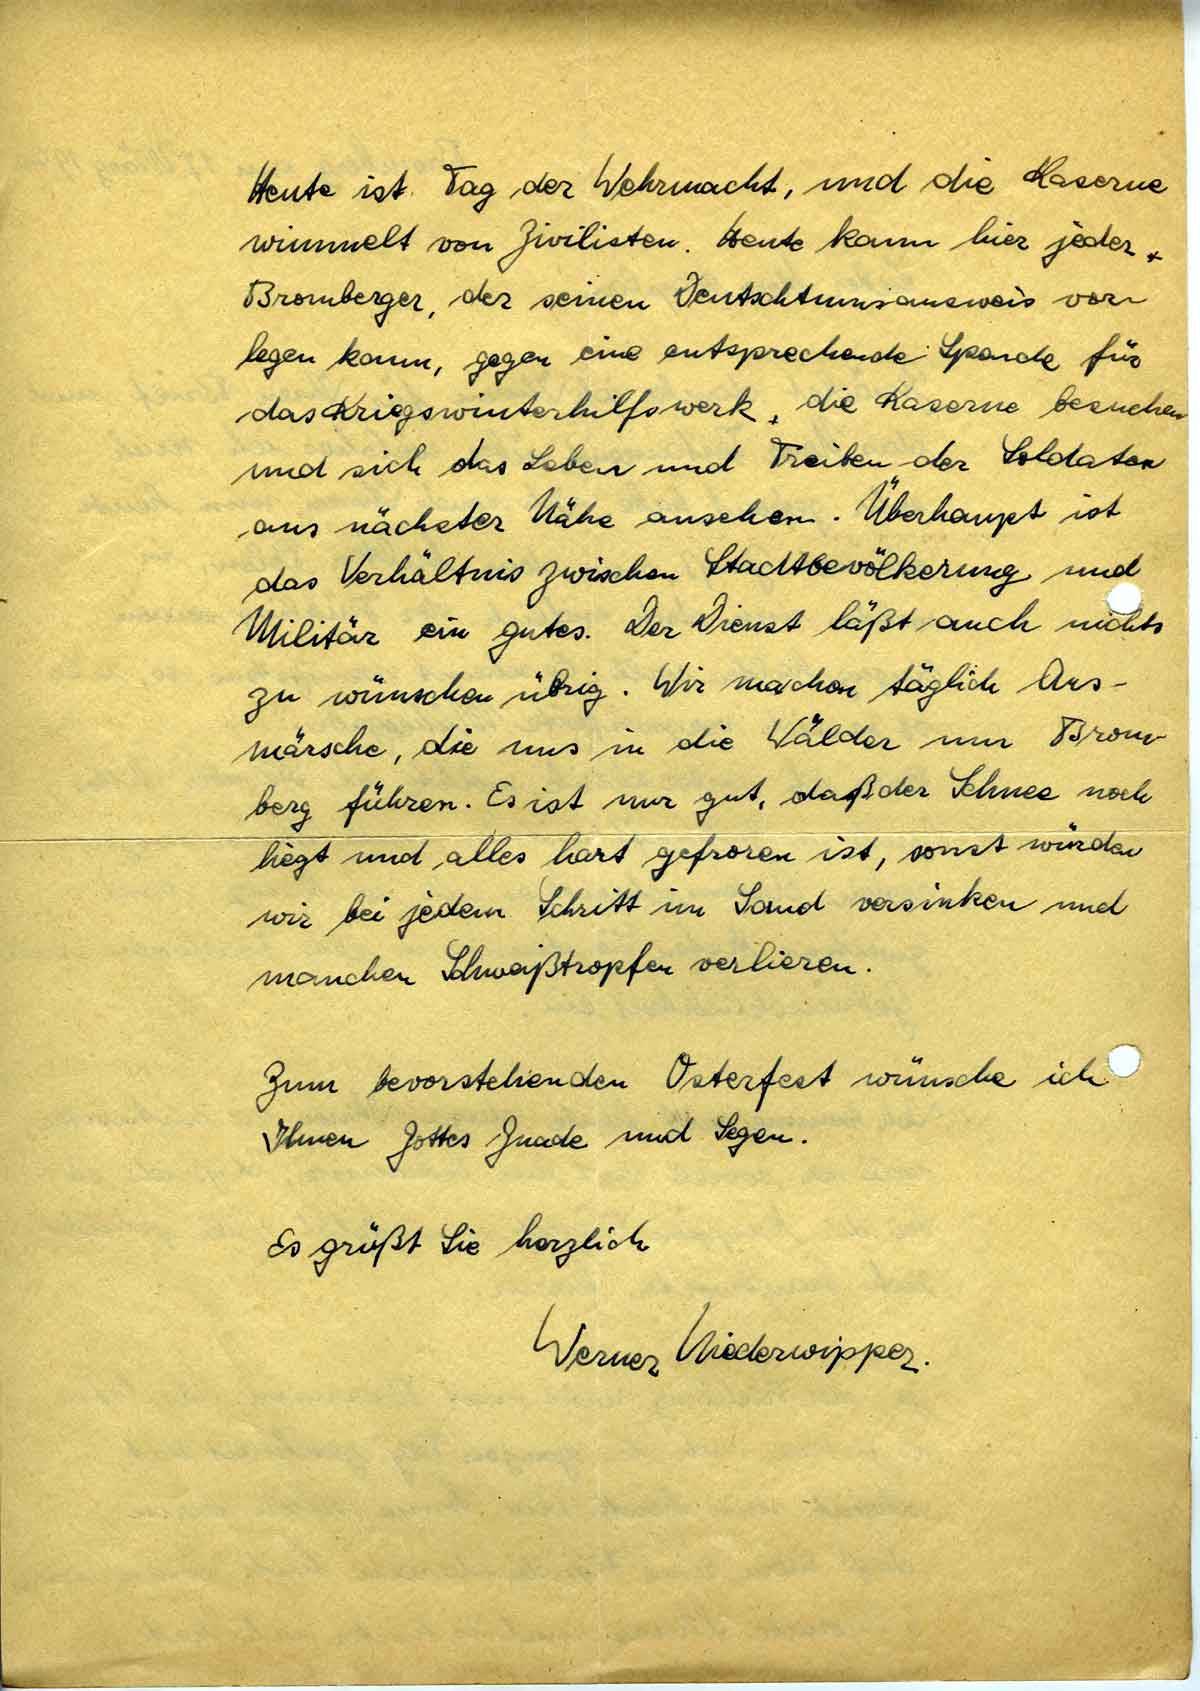 Heute ist Tag der Wehrmacht, und die Kaserne
wimmelt von Zivilisten. Heute kann hier jeder
Bromberger, der seinen Deutschtumsausweis vor-
legen kann, gegen eine entsprechende Spende für
das Kriegswinterhilfswerk, die Kaserne besuchen
und sich das Leben und Treiben der Soldaten
aus nächster Nähe ansehen. Überhaupt ist
das Verhältnis zwischen Stadtbevölkerung und
Militär ein gutes. Der Dienst läßt auch nichts
zu wünschen übrig. Wir machen täglich Aus-
märsche, die uns in die Wälder um Brom-
berg führen. Es ist nur gut, daß der Schnee noch
liegt und alles hart gefroren ist, sonst würden
wir bei jedem Schritt im Sand versinken und
manchen Schweißtropfen verlieren.
Zum bevorstehenden Osterfest wünsche ich
Ihnen Gottes Gnade und Segen.
Es grüßt Sie herzlich
Werner Niederwipper.